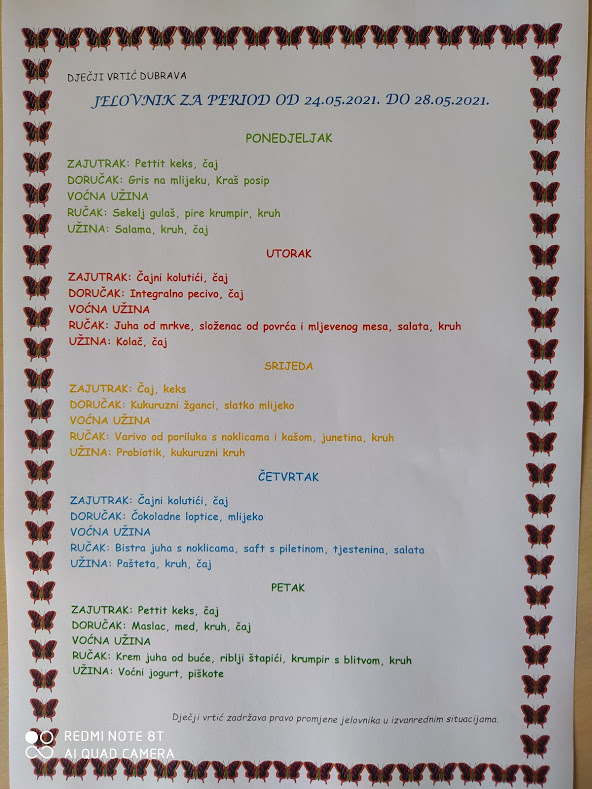 DJEČJI VRTIĆ DUBRAVA
JELOVNIK ZA PERIOD OD 24.05.2021. DO 28.05.2021.
PONEDJELJAK
ZAJUTRAK: Pettit keks, čaj
DORUČAK: Gris na mlijeku, Kraš posip
VOĆNA UŽINA
RUČAK: Sekelj gulaš, pire krumpir, kruh
UŽINA: Salama, kruh, čaj
UTORAK
ZAJUTRAK: Čajni kolutići, čaj
DORUČAK: Integralno pecivo, čaj
VOĆNA UŽINA
RUČAK: Juha od mrkve, složenac od povrća i mljevenog mesa, salata, kruh
UŽINA: Kolač, čaj
SRIJEDA
ZAJUTRAK: Čaj, keks
DORUČAK: Kukuruzni žganci, slatko mlijeko
VOĆNA UŽINA
RUČAK: Varivo od poriluka s noklicama i kašom, junetina, kruh
UŽINA: Probiotik, kukuruzni kruh
ČETVRTAK
ZAJUTRAK: Čajni kolutići, čaj
DORUČAK: Čokoladne loptice, mlijeko
VOĆNA UŽINA
RUČAK: Bistra juha s noklicama, saft s piletinom, tjestenina, salata
UŽINA: Pašteta, kruh, čaj
PETAK
ZAJUTRAK: Pettit keks, čaj
DORUČAK: Maslac, med, kruh, čaj
VOĆNA UŽINA
RUČAK: Krem juha od buće, riblji štapići, krumpir s blitvom, kruh
UŽINA: Voćni jogurt, piškote
Dječji vrtić zadržava pravo promjene jelovnika u izvanrednim situacijama.
REDMI NOTE 8T
AI QUAD CAMERA